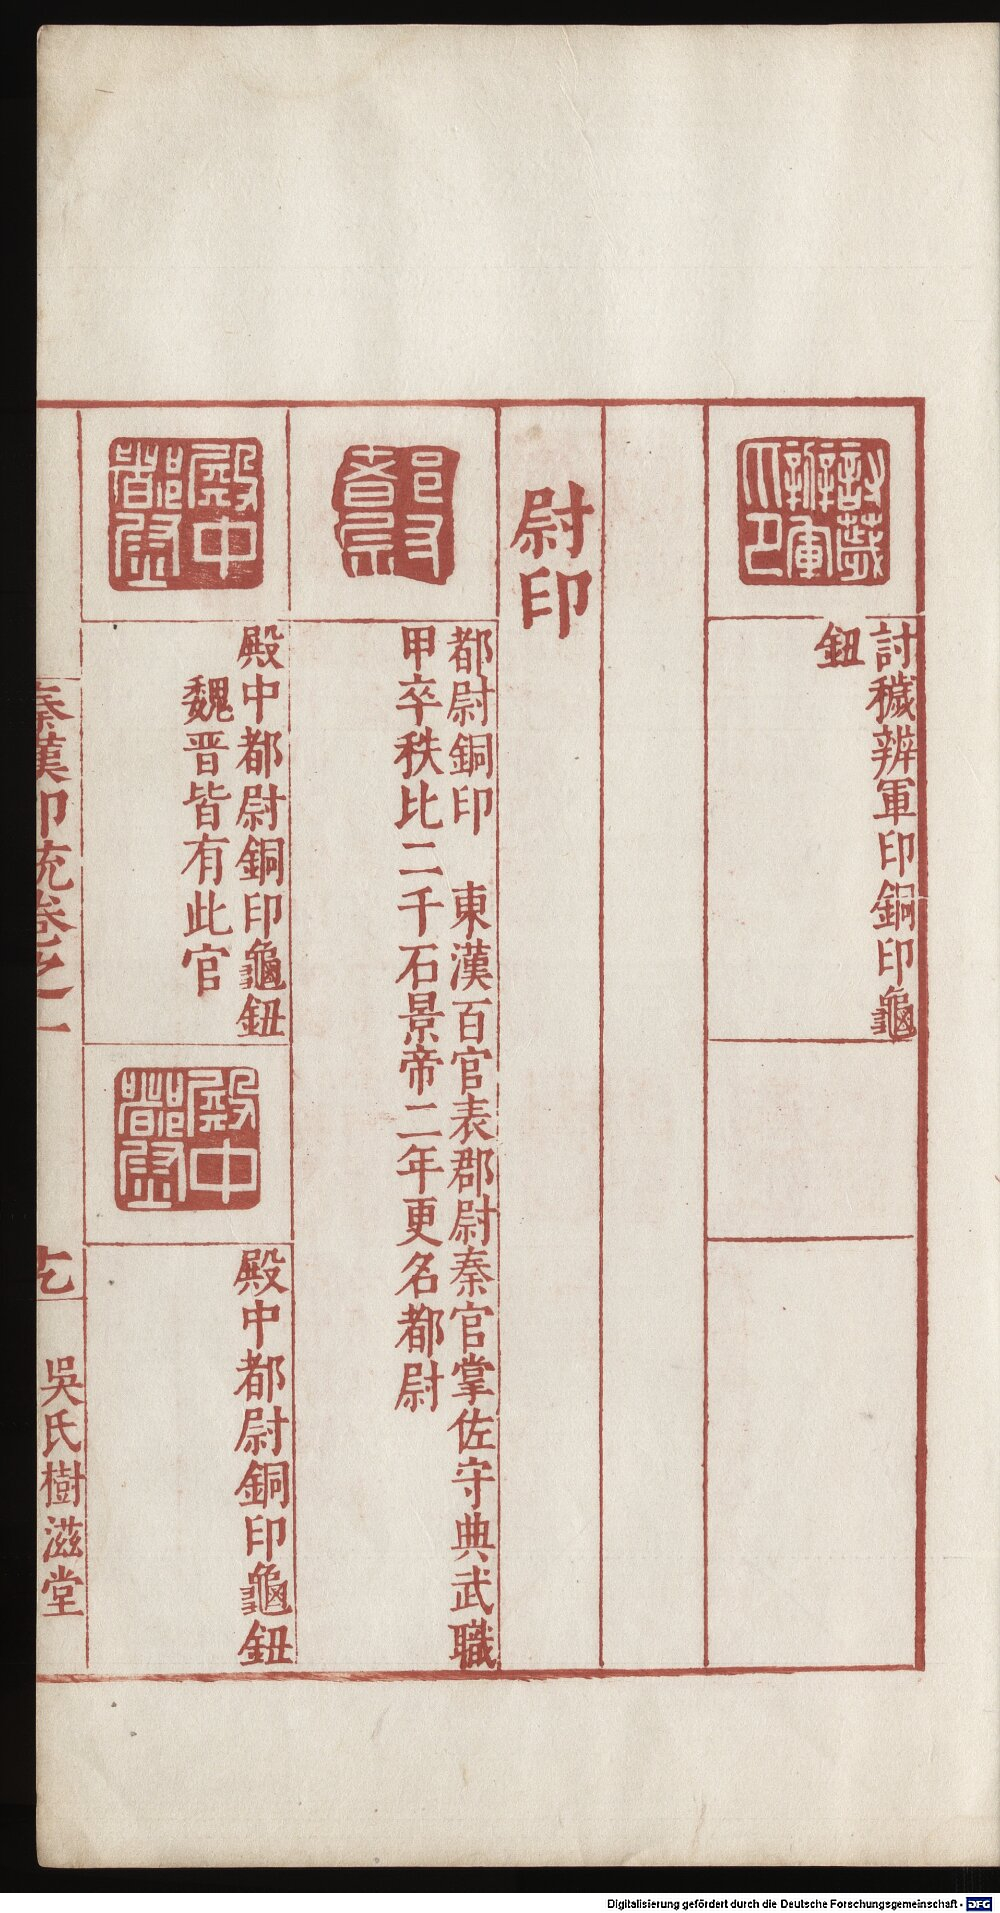 討穢辨軍印銅印龜
鈕
尉印
都尉銅印　東漢百官表郡尉秦官掌佐守典武職
甲卒秩比二千石景帝二年更名都尉
殿中都尉
殿中都尉銅印龜鈕
魏晋皆有此官
殿中都尉
殿中都尉銅印龜鈕
秦漢印统卷之一
吳氏樹滋堂
Digitalisierung gefördert durch die Deutsche Forschungsgemeinschaft - DFG